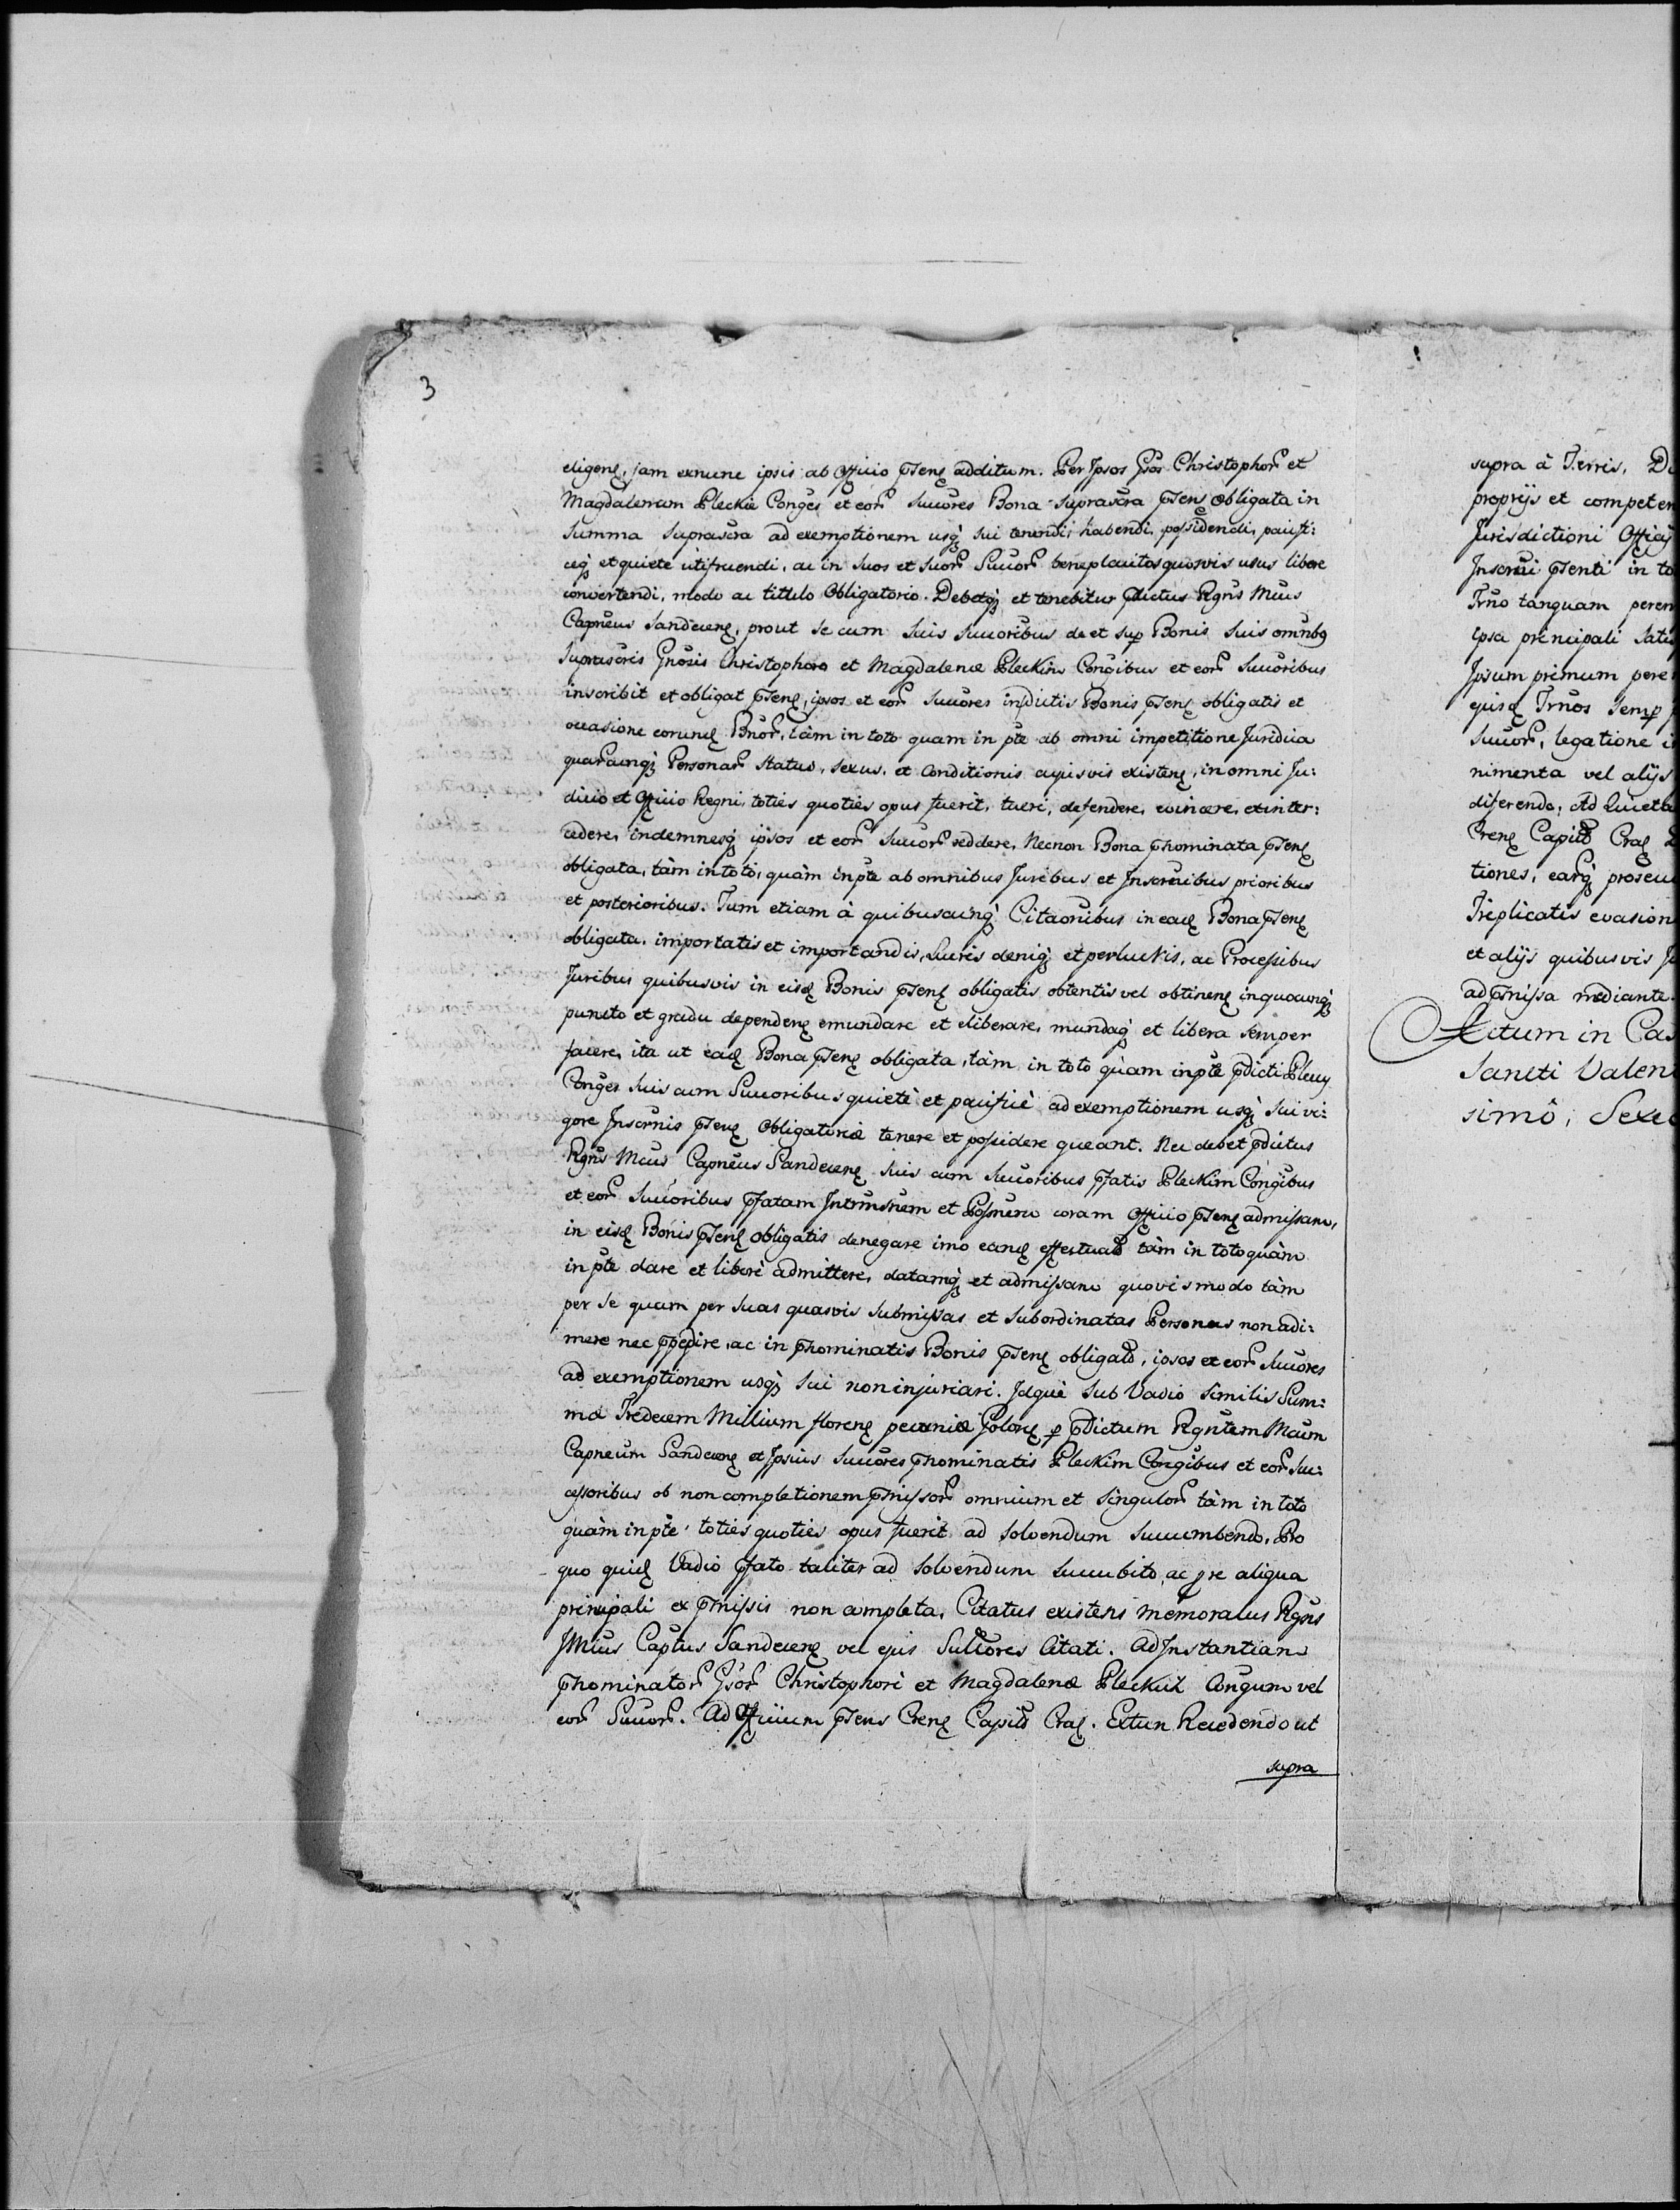 3
eligen, jam exnunc ipsis ab Officio pñsen additum. Per Ipsos Gsos Christophor et
Magdalenam Pleckie Conges et eor Succores Bona suprascra pñsen obligata in
Summa suprascra ad exemptionem usq sui tenendi, habendi, possidendi, pacifi:
ceq et quiete utifruendi, ac in suos et suor Succor beneplacitos quosvis usus libere
convertendi, modo ac tittulo Obligatorio. Debetq et tenebitur pdictus Rgns Mcus
Capneus Sandecen, prout se cum suis succoribus de et sup Bonis suis omnbg
suprascris Gnosis Christophoro et Magdalenæ Pleckim Congibus et eor Succoribus
inscribit et obligat pñsen, ipsos et eor Succores in pdictis Bonis pñsen obligatis et
occasione eorund Bnor, tàm in toto quam in pte ab omni impetitione Juridica
quarcunq Personar status, sexus, et Conditionis cujusvis existen, in omni Ju:
dicio et Officio Regni, toties quoties opus fuerit, tueri, defendere, evincere, et inter:
cedere, indemnesq ipsos et eor Succor reddere, Necnon Bona phominata pñsen
obligata, tàm in toto, quàm in pte ab omnibus Juribus et Inscrnibus prioribus
et posterioribus. Tum etiam à quibuscunq Citaonibus in ead Bona pñsen
obligata, importatis et importandis, Lucris deniq et perluckis, ac Processibus
Juribus quibusvis in eisd Bonis pñsen obligatis obtentis vel obtinen in quocunq
puncto et gradu dependen emundare et eliberare, mundaq et libera semper
facere, ita ut ead Bona pñsen obligata, tàm in toto quàm in pte pdicti Plecy
Conges suis cum Succoribus quietè et pacificè ad exemptionem usq sui vi:
gore Inscrnis pñsen Obligatoriæ tenere et possidere queant. Nec debet pdictus
Rgns Mcus Capneus Sandecen suis cum succoribus pfatis Pleckim Congibus
et eor Succoribus pfatam Intrmsnem et Possnem coram Officio pñsen admissam,
in eisd Bonis pñsen obligatis denegare imo eand effectual tàm in toto quàm
in pte dare et liberè admittere, datamq et admissam quovis modo tàm
per se quam per suas quasvis submissas et subordinatas Personas non adi:
mere nec ppedire, ac in phominatis Bonis pñsen obligatis, ipsos et eor Succores
ad exemptionem usq sui non injuriari. Idquè sub Vadio similis Sum:
mæ Tredecem Millium floren pecuniæ Polon, p pdictum Rgntem Mcum
Capneum Sandecen et Ipsius Succores phominatis Pleckim Congibus et eor Suc:
cessoribus ob non completionem pmissor omnium et singulor tàm in toto
quàm in pte toties quoties opus fuerit ad solvendum succumbendo. Pro
quo quid Vadio pfato taliter ad solvendum succubito, ac pre aliqua
principali ex pmissis non completa, Citatus existens memoratus Rgns
Mcus Captus Sandecen vel ejus Succores Citati. Ad Instantiam
phominator Gsor Christophori et Magdalenæ Pleckich Congum vel
eor Succor. Ad Officium pñsens Cren Capitd Crac. Extun Recedendo ut
supra
supra à Terris,
proprijs et competen
Jurisdictioni Officij
Inscrni pñsenti in to
Trno tanquam perem
ipsa principali satis
Ipsum primum pere
ejusd Trnos semp
Succor, legatione
nimenta vel alijs
diferendo, Ad
Cren Capitd Crac
tiones, earq prosecu
Treplicatis evasion
et alijs quibusvis
ad pmissa mediante
Actum in Cas
Sancti Valen
simô, Sexa